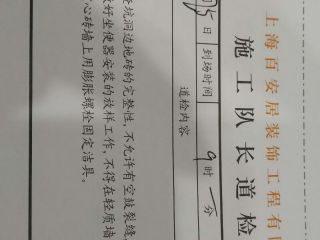 上海百安居装饰工程有
施工队长道检
5日 到场时间 9时 分
道检内容
坑洞边地砖的完整性，不允许有空鼓裂缝
好坐便器安装的放样工作，不得在轻质墙
心砖墙上用膨胀螺栓固定洁具。